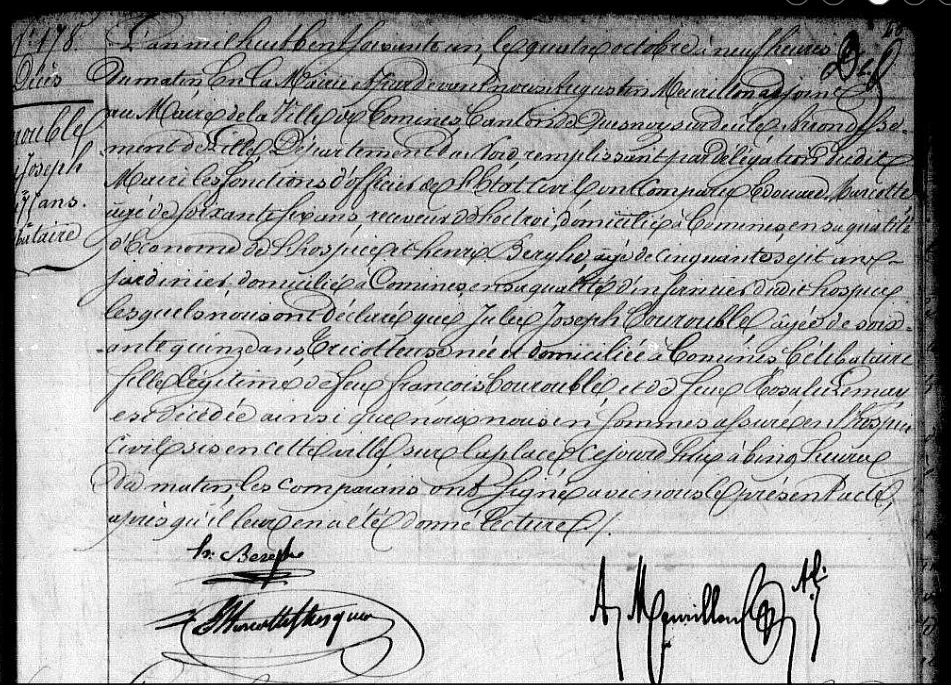 N° 178.
Décès
rouble
Joseph
ans.
bataire
L'an mil huit cent soixante un, le quatre octobre à neuf heures
Du matin En la Mairie et pardevant nous Augustin Meurillon adjoint
au Maire de la Ville de Comines Canton de Quesnoy sur deûle, arrondisse-
ment de Lille, Département du Nord, remplissant par délégation dudit
Maire les fonctions d'officier de l'Etat Civil ont Comparu Edouard Marcotte
âgé de soixante six ans, receveur de l'octroi, domicilié à Comines, en sa qualité
d'Econome de l'hospice et henri Berghe, âgé de cinquante sept ans
Jardinier, domicilié à Comines, en sa qualité d'infirmier dudit hospice
lesquels nous ont déclaré que Julie Joseph Courouble, âgée de soix-
ante quinze ans, tricoteuse née et domiciliée à Comines, Célibataire
fille légitime de feu françois Courouble et de feue Rosalie Lemay
est décédée ainsi que nous nous en sommes assuré en l'hospice
Civil sis en cette ville, sur la place, cejourd'hui à cinq heures
Du matin, les comparans ont signé avec nous le présent acte
après qu'il leur en a été donné lecture /.
h. Berghe
A Meurillon